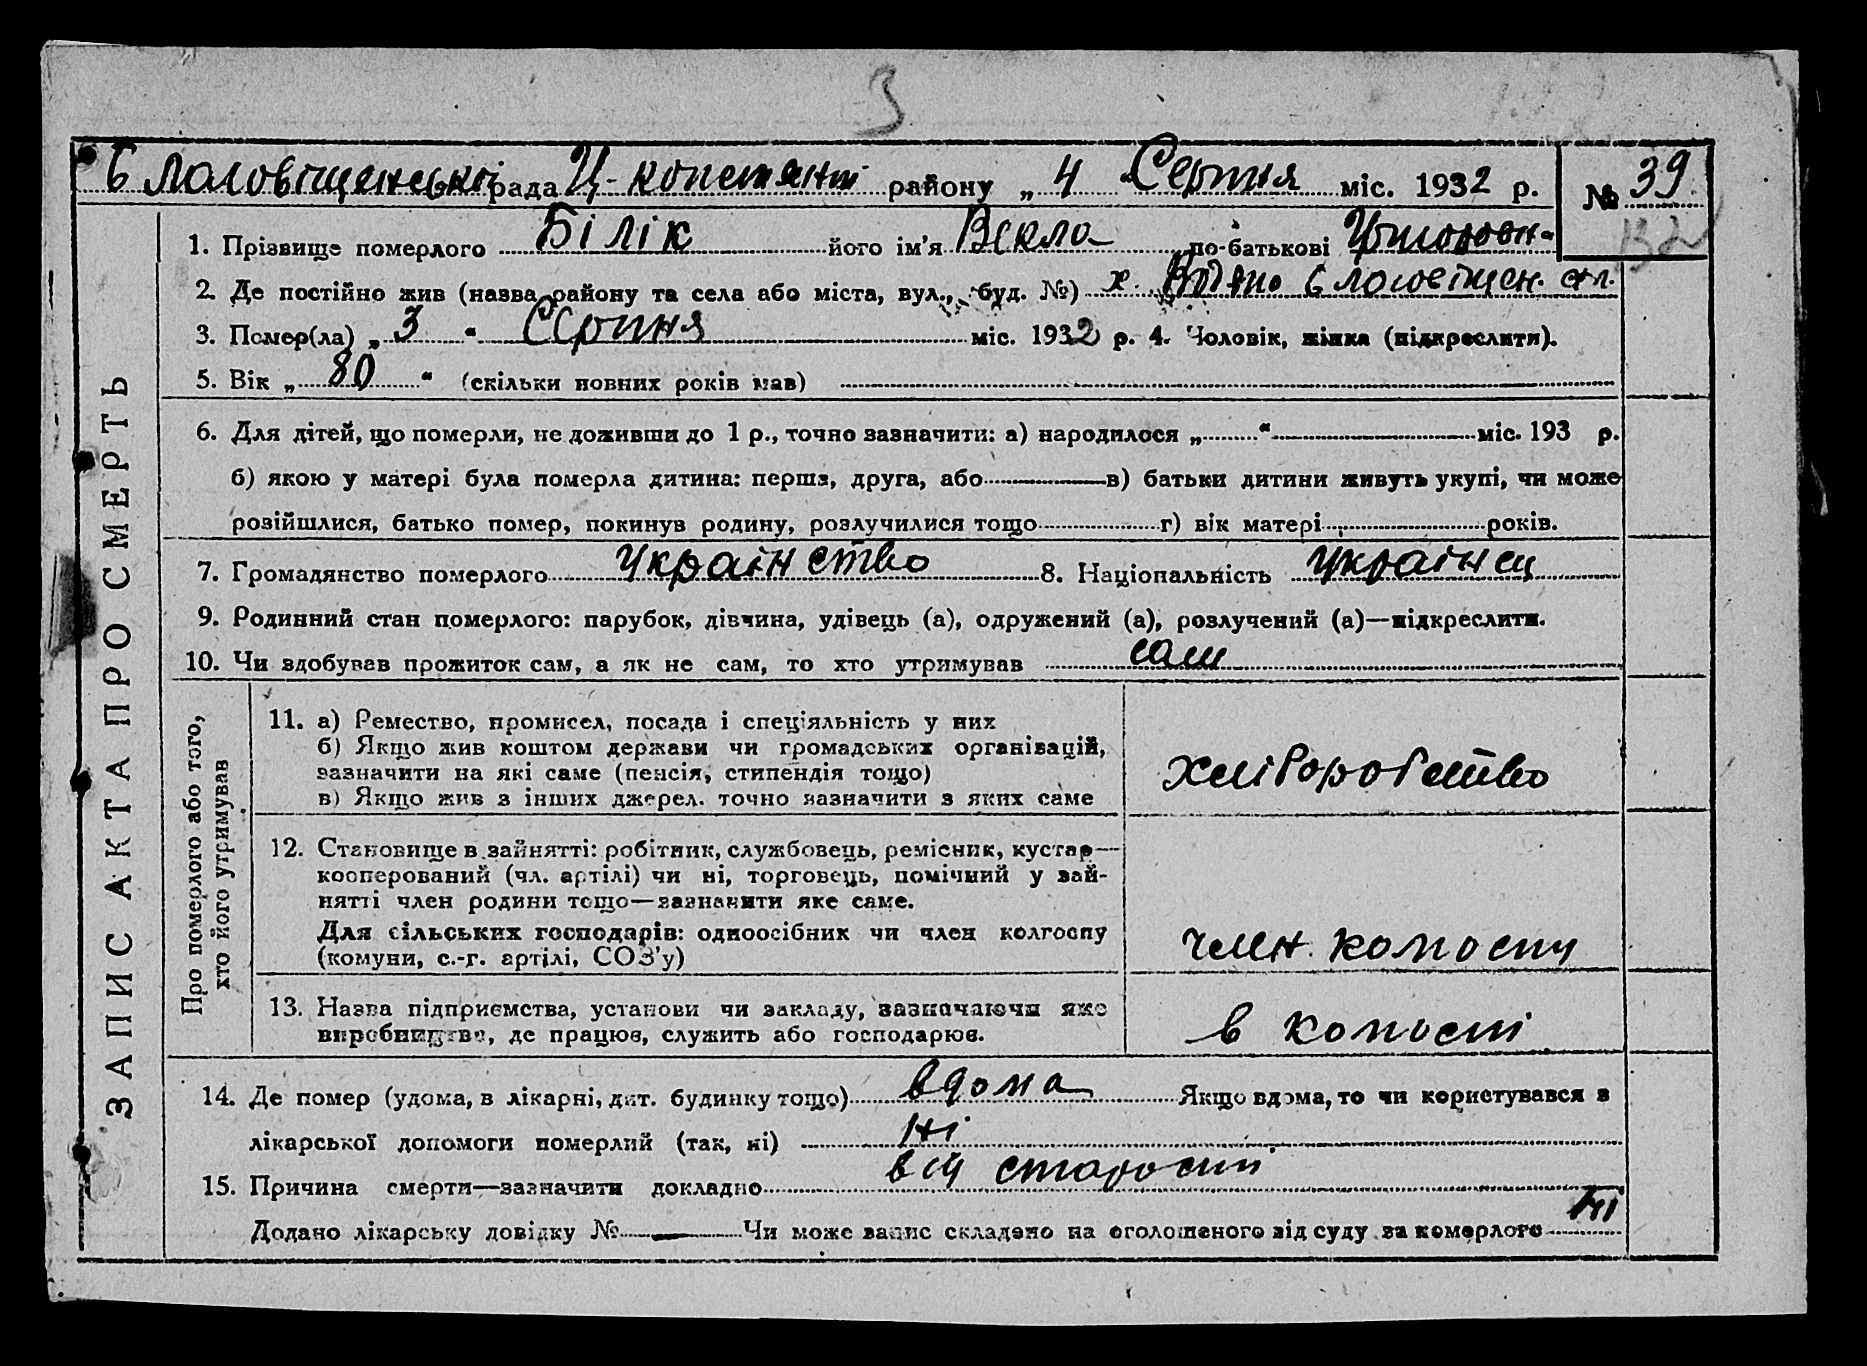 3
рада Ц-констянт району „ 4 “ Серпня міс. 1932 р. № 39
132
1. Прізвище померлого Білік його ім'я Векла по-батькові
2. Де постійно жив (назва району та села або міста, вул., буд. №) х.
3. Помер(ла) „ 3 “ Серпня міс. 1932 р. 4. Чоловік, жінка (підкреслити).
5. Вік „ 80 “ (скільки повних років мав)
6. Для дітей, що померли, не доживши до 1 р., точно зазначити: а) народилося „ “ міс. 193 р.
б) якою у матері була померла дитина: перша, друга, або в) батьки дитини живуть укупі, чи може
розійшлися, батько помер, покинув родину, розлучилися тощо г) вік матері років.
7. Громадянство померлого українство 8. Національність українец
9. Родинний стан померлого: парубок, дівчина, удівець (а), одружений (а), розлучений (а)—підкреслити.
10. Чи здобував прожиток сам, а як не сам, то хто утримував сам
ЗАПИС АКТА ПРО СМЕРТЬ
Про померлого або того,
хто його утримував
11. а) Ремество, промисел, посада і спеціяльність у них
б) Якщо жив коштом держави чи громадських організацій,
зазначити на які саме (пенсія, стипендія тощо)
в) Якщо жив з інших джерел. точно зазначити з яких саме
хліборобство
12. Становище в зайнятті: робітник, службовець, ремісник, кустар—
кооперований (чл. артілі) чи ні, торговець, помічний у зай-
нятті член родини тощо—зазначити яке саме.
Для сільських господарів: одноосібник чи член колгоспу
(комуни, с.-г. артілі, СОЗ'у)
член. колгоспу
13. Назва підприємства, установи чи закладу, зазначаючи яке
виробництво, де працює, служить або господарює.
в колгоспі
14. Де помер (удома, в лікарні, дит. будинку тощо) вдома Якщо вдома, то чи користувався з
лікарської допомоги померлий (так, ні) ні
15. Причина смерти—зазначити докладно від старости
Додано лікарську довідку № — Чи може запис складено на оголошеного від суду за померлого ні